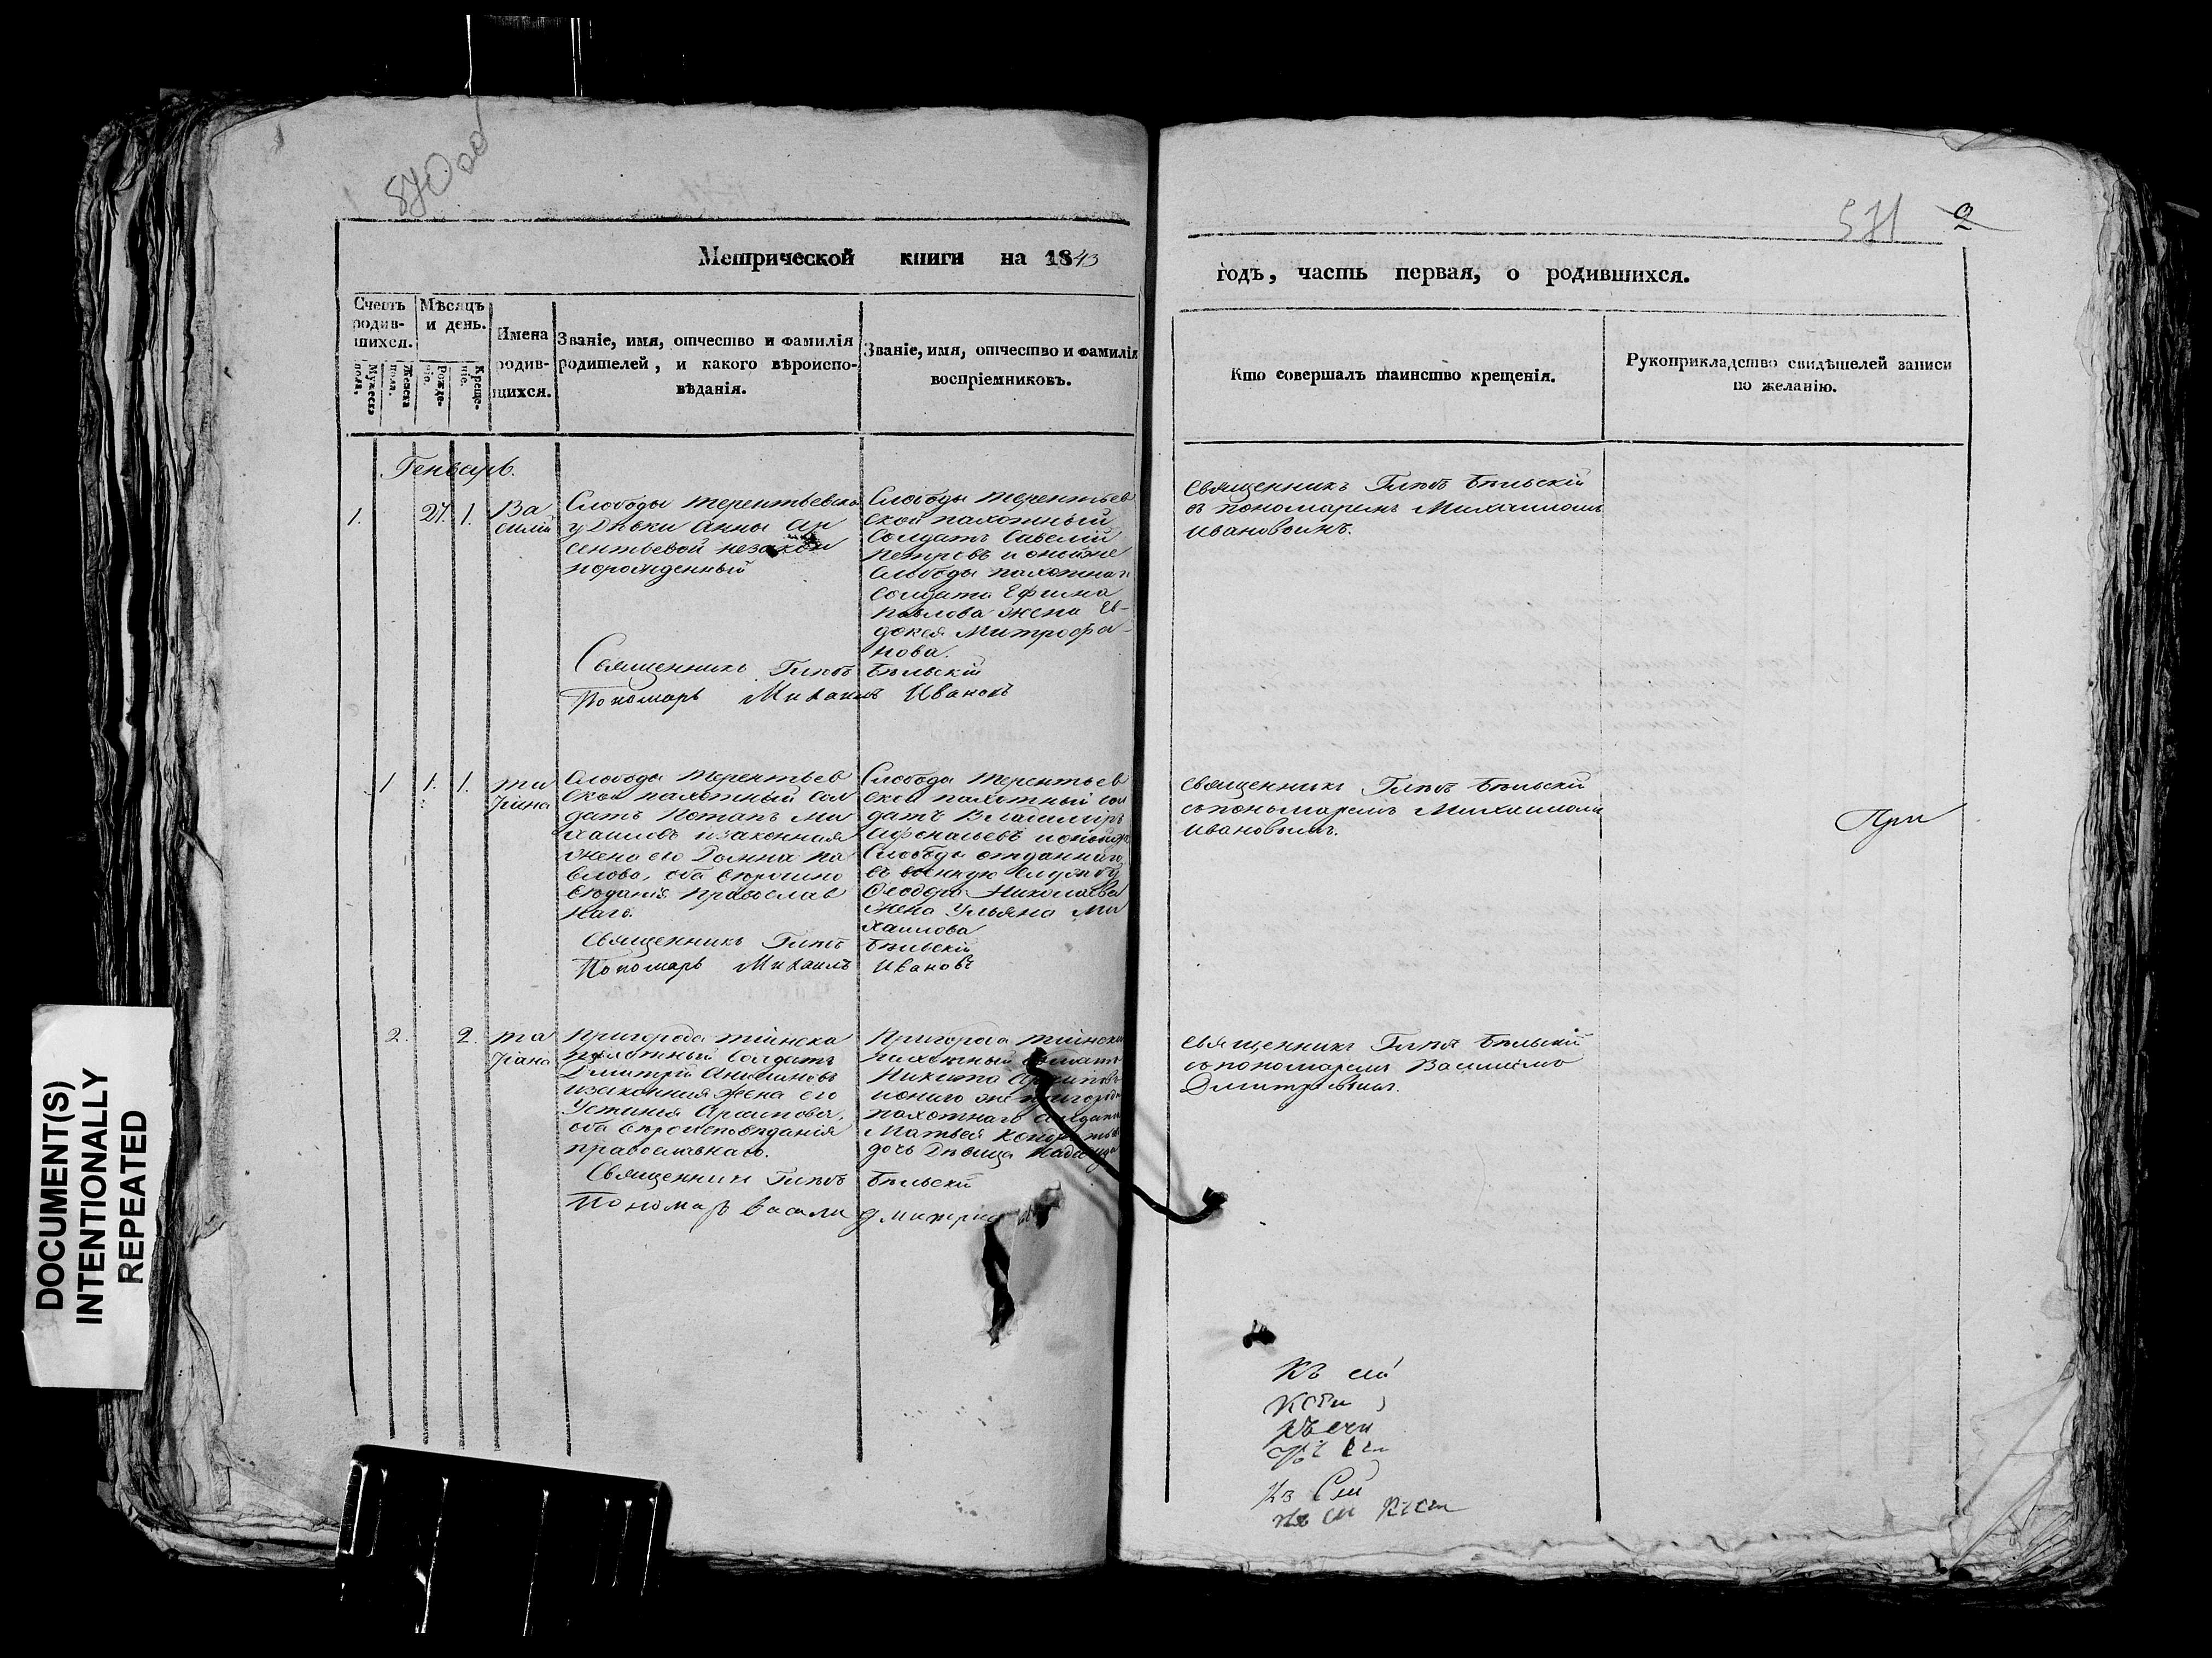 870 об
571 2
Метрической книги на 1843
годъ, часть первая, о родившихся.
Счетъ родив-шихся.
Мужеска пола.
Женска пола.
Мѣсяцъ и день.
Рожде-ніе.
Креще-ніе.
Имена родив-шихся.
Званіе, имя, отчество и фамилія
родителей, и какого вѣроиспо-
вѣданія.
Званіе, имя, отчество и фамилія
воспріемниковъ.
Кто совершалъ таинство крещенія.
Рукоприкладство свидѣтелей записи
по желанію.
Генварь.
1. 27. 1.
Ва
силій
Слободы Терентьевско
у Дѣвки Анны Ар
сентьевой незакон
норожденный
Слободы Терентьев
ской пахотный
Солдатъ Савелій
Петровъ и оной же
Слободы пахотнаго
Солдата Ефима
Павлова жена Ев-
докея Митрофа-
нова.
Священникъ Глѣбъ Бѣльскій
съ пономаремъ Михаиломъ
Ивановымъ.
Священникъ Глѣбъ Бѣльскій
Пономарь Михаилъ Ивановъ
1 1. 1.
Та
тіана
Слободы Терентьев
ской пахотный сол
датъ Потапъ Ми
хаиловъ и законная
жена его Домна Па
влова, оба вероиспо
веданія православ
наго.
Слободы Терентьев
ской пахотный сол
датъ Владимиръ
Афонасьевъ и оной же
Слободы отданнаго
въ военную службу
Феодора Николаева
жена Ульяна Ми
хаилова
Священникъ Глѣбъ Бѣльскій
съ пономаремъ Михаиломъ
Ивановымъ.
При
Священникъ Глѣбъ Бѣльскій
Пономарь Михаилъ Ивановъ
2. 2.
Та
тіана
Пригорода Тіинска
пахотный Солдатъ
Дмитрій
и законная жена его
Устинья Архипова,
оба вѣроисповѣданія
православнаго.
Пригорода Тіинска
пахотный Солдатъ
Никита
и онаго же пригорода
пахотнаго Солдата
Матвея
дочь Дѣвица Надежда
Священникъ Глѣбъ Бѣльскій
съ пономаремъ Василіемъ
Дмитріевымъ.
Священник Глѣбъ Бѣльскій
Пономаръ Васили Дмитрие
DOCUMENT(S)
INTENTIONALLY
REPEATED